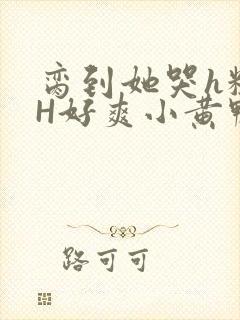 弯到她哭h粗
H好爽小黄鸭
路可可